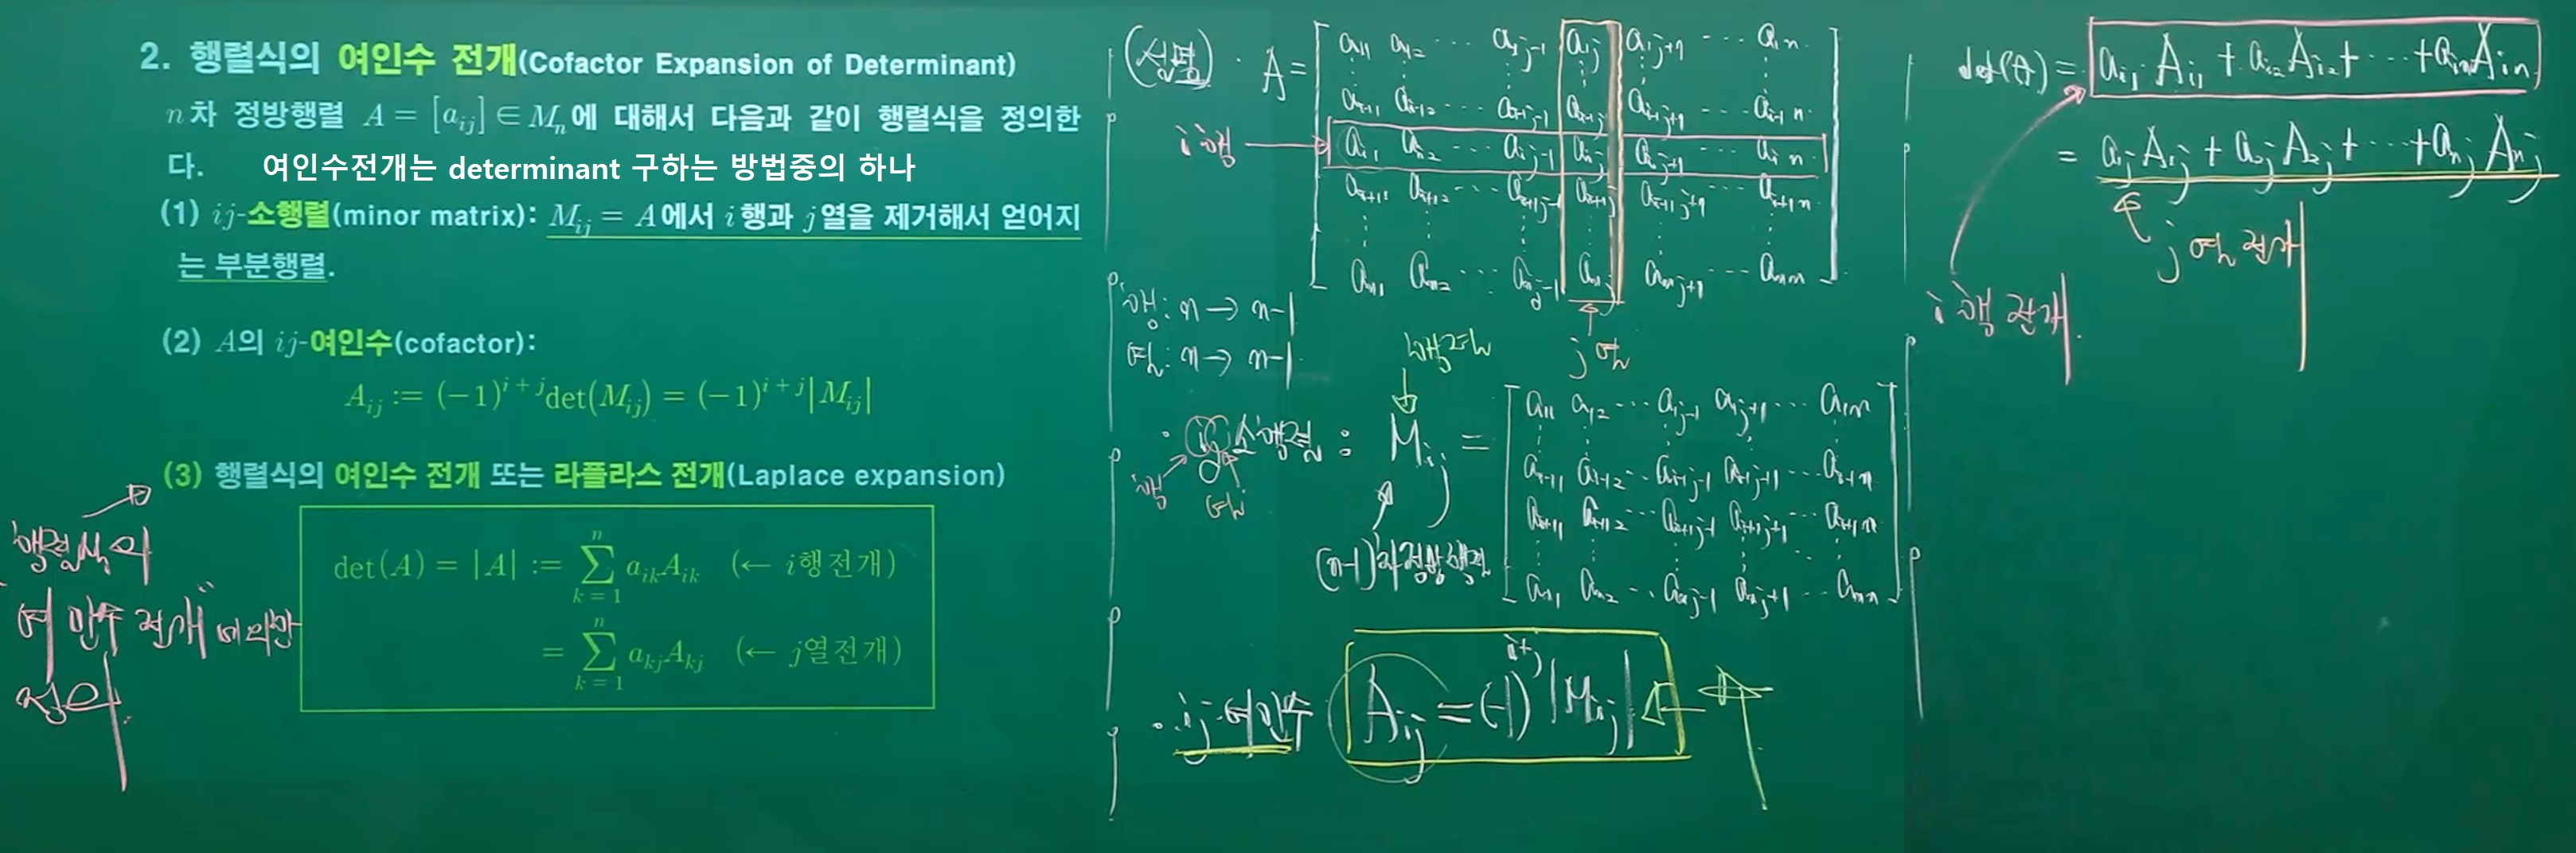 2. 행렬식의 여인수 전개(Cofactor Expansion of Determinant)
n차 정방행렬 A = [a_{ij}] ∈ M_n에 대해서 다음과 같이 행렬식을 정의한
다. 여인수전개는 determinant 구하는 방법중의 하나
(1) ij-소행렬(minor matrix): M_{ij} = A에서 i행과 j열을 제거해서 얻어지
는 부분행렬.
(2) A의 ij-여인수(cofactor):
A_{ij} := (-1)^{i+j}det(M_{ij}) = (-1)^{i+j}|M_{ij}|
(3) 행렬식의 여인수 전개 또는 라플라스 전개(Laplace expansion)
det(A) = |A| := \sum_{k=1}^{n} a_{ik}A_{ik} (← i행전개)
= \sum_{k=1}^{n} a_{kj}A_{kj} (← j열전개)
행렬식의
"여인수 전개"에 의한
정의
(설명) · A =
a_{11} a_{12} ··· a_{1j-1} a_{1j} a_{1j+1} ··· a_{1n}
a_{i-11} a_{i-12} ··· a_{i-1j-1} a_{i-1j} a_{i-1j+1} ··· a_{i-1n}
i행 → a_{i1} a_{i2} ··· a_{ij-1} a_{ij} a_{ij+1} ··· a_{in}
a_{i+11} a_{i+12} ··· a_{i+1j-1} a_{i+1j} a_{i+1j+1} ··· a_{i+1n}
a_{n1} a_{n2} ··· a_{nj-1} a_{nj} a_{nj+1} ··· a_{nn}
j열
행: n → n-1
열: n → n-1
행렬
· ij 소행렬 : M_{ij} =
행
열
(n-1)차 정방행렬
a_{11} a_{12} ··· a_{1j-1} a_{1j+1} ··· a_{1n}
a_{i-11} a_{i-12} ··· a_{i-1j-1} a_{i-1j+1} ··· a_{i-1n}
a_{i+11} a_{i+12} ··· a_{i+1j-1} a_{i+1j+1} ··· a_{i+1n}
a_{n1} a_{n2} ··· a_{nj-1} a_{nj+1} ··· a_{nn}
· ij-여인수 A_{ij} = (-1)^{i+j} |M_{ij}| ← 수
det(A) = a_{i1}A_{i1} + a_{i2}A_{i2} + ··· + a_{in}A_{in}
= a_{1j}A_{1j} + a_{2j}A_{2j} + ··· + a_{nj}A_{nj}
j열 전개
i행 전개